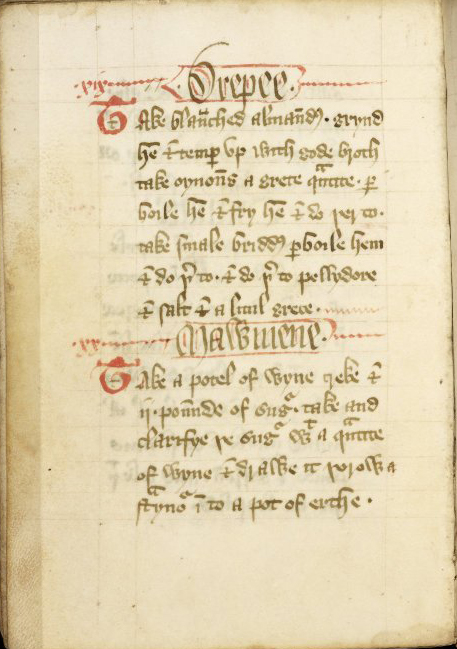 .xix. Drepee.
Take blan̄ched alman̄dꝭ. grynd
hē & temꝑ vp with gode broth
take oynoūs a grete qᷓntite. ꝑ
boile hē & fry hē & do þer to.
take smale briddꝭ ꝑboile hem
& do þʳ to. & do þʳ to pellydore
& salt & a litul grece.
.xx. Mawmene.
Take a potel of wyne greke &
ii. poūnde of sugᷓ. take and
clarifye þe sugᷓ wᵗ a qᷓntite
of wyne & drawe it þorow a
stᷓynoʳ ī to a pot of erthe.